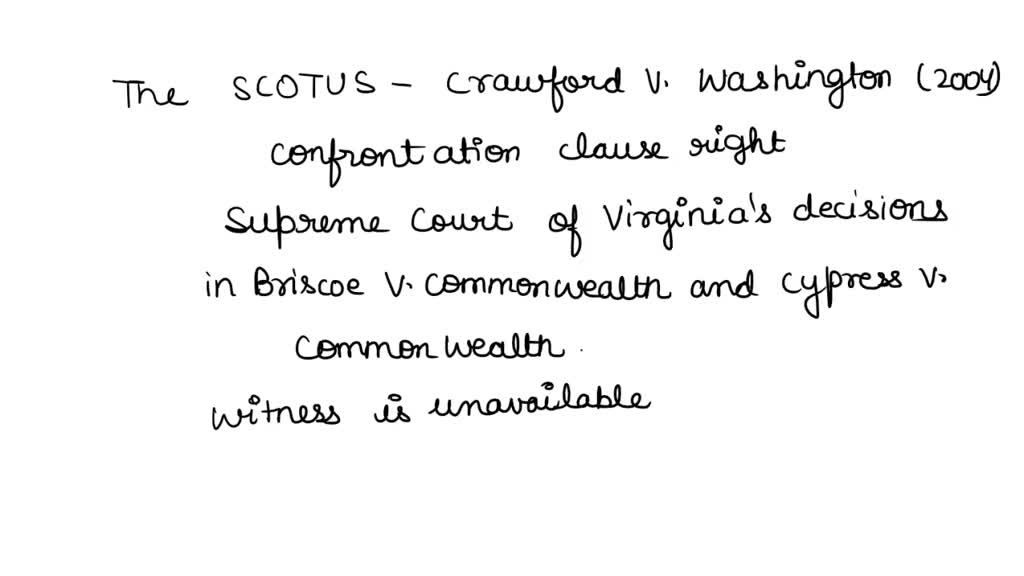 The SCOTUS - Crawford v. Washington (2004)
confrontation clause right
Supreme Court of Virginia's decisions
in Briscoe v. commonwealth and cypress v.
common wealth.
witness is unavailable